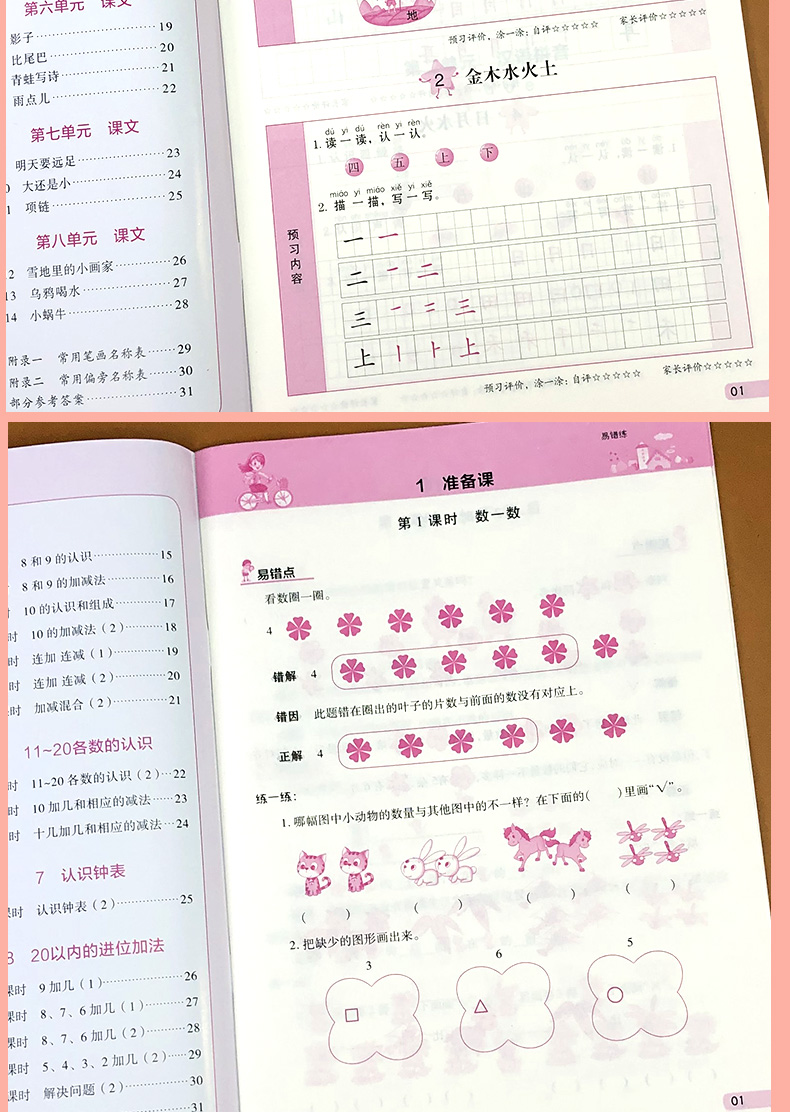 第六单元 课文
影子 19
比尾巴 20
青蛙写诗 21
雨点儿 22
第七单元 课文
明天要远足 23
0 大还是小 24
1 项链 25
第八单元 课文
2 雪地里的小画家 26
13 乌鸦喝水 27
14 小蜗牛 28
附录一 常用笔画名称表 29
附录二 常用偏旁名称表 30
部分参考答案 31
地
预习评价,涂一涂:自评☆☆☆☆☆ 家长评价☆☆☆☆☆
2 金木水火土
预习内容
dú yi dú rèn yi rèn
1.读一读,认一认。
四 五 上 下
miáo yi miáo xiě yi xiě
2.描一描,写一写。
一 一
二 一 二
三 一 二 三
上 丨 ⺊ 上
预习评价,涂一涂:自评☆☆☆☆☆ 家长评价☆☆☆☆☆
01
8和9的认识 15
8和9的加减法 16
时 10的认识和组成 17
时 10的加减法(2) 18
时 连加 连减(1) 19
时 连加 连减(2) 20
课时 加减混合(2) 21
11~20各数的认识
时 11~20各数的认识(2) 22
时 10加几和相应的减法 23
时 十几加几和相应的减法 24
7 认识钟表
课时 认识钟表(2) 25
8 20以内的进位加法
课时 9加几(1) 26
课时 8、7、6加几(1) 27
课时 8、7、6加几(2) 28
课时 5、4、3、2加几(2) 29
课时 解决问题(2) 30
31
易错练
1 准备课
第1课时 数一数
易错点
看数圈一圈。
4
错解 4
错因 此题错在圈出的叶子的片数与前面的数没有对应上。
正解 4
练一练:
1.哪幅图中小动物的数量与其他图中的不一样?在下面的( )里画“√”。
( ) ( ) ( ) ( )
2.把缺少的图形画出来。
3 6 5
01